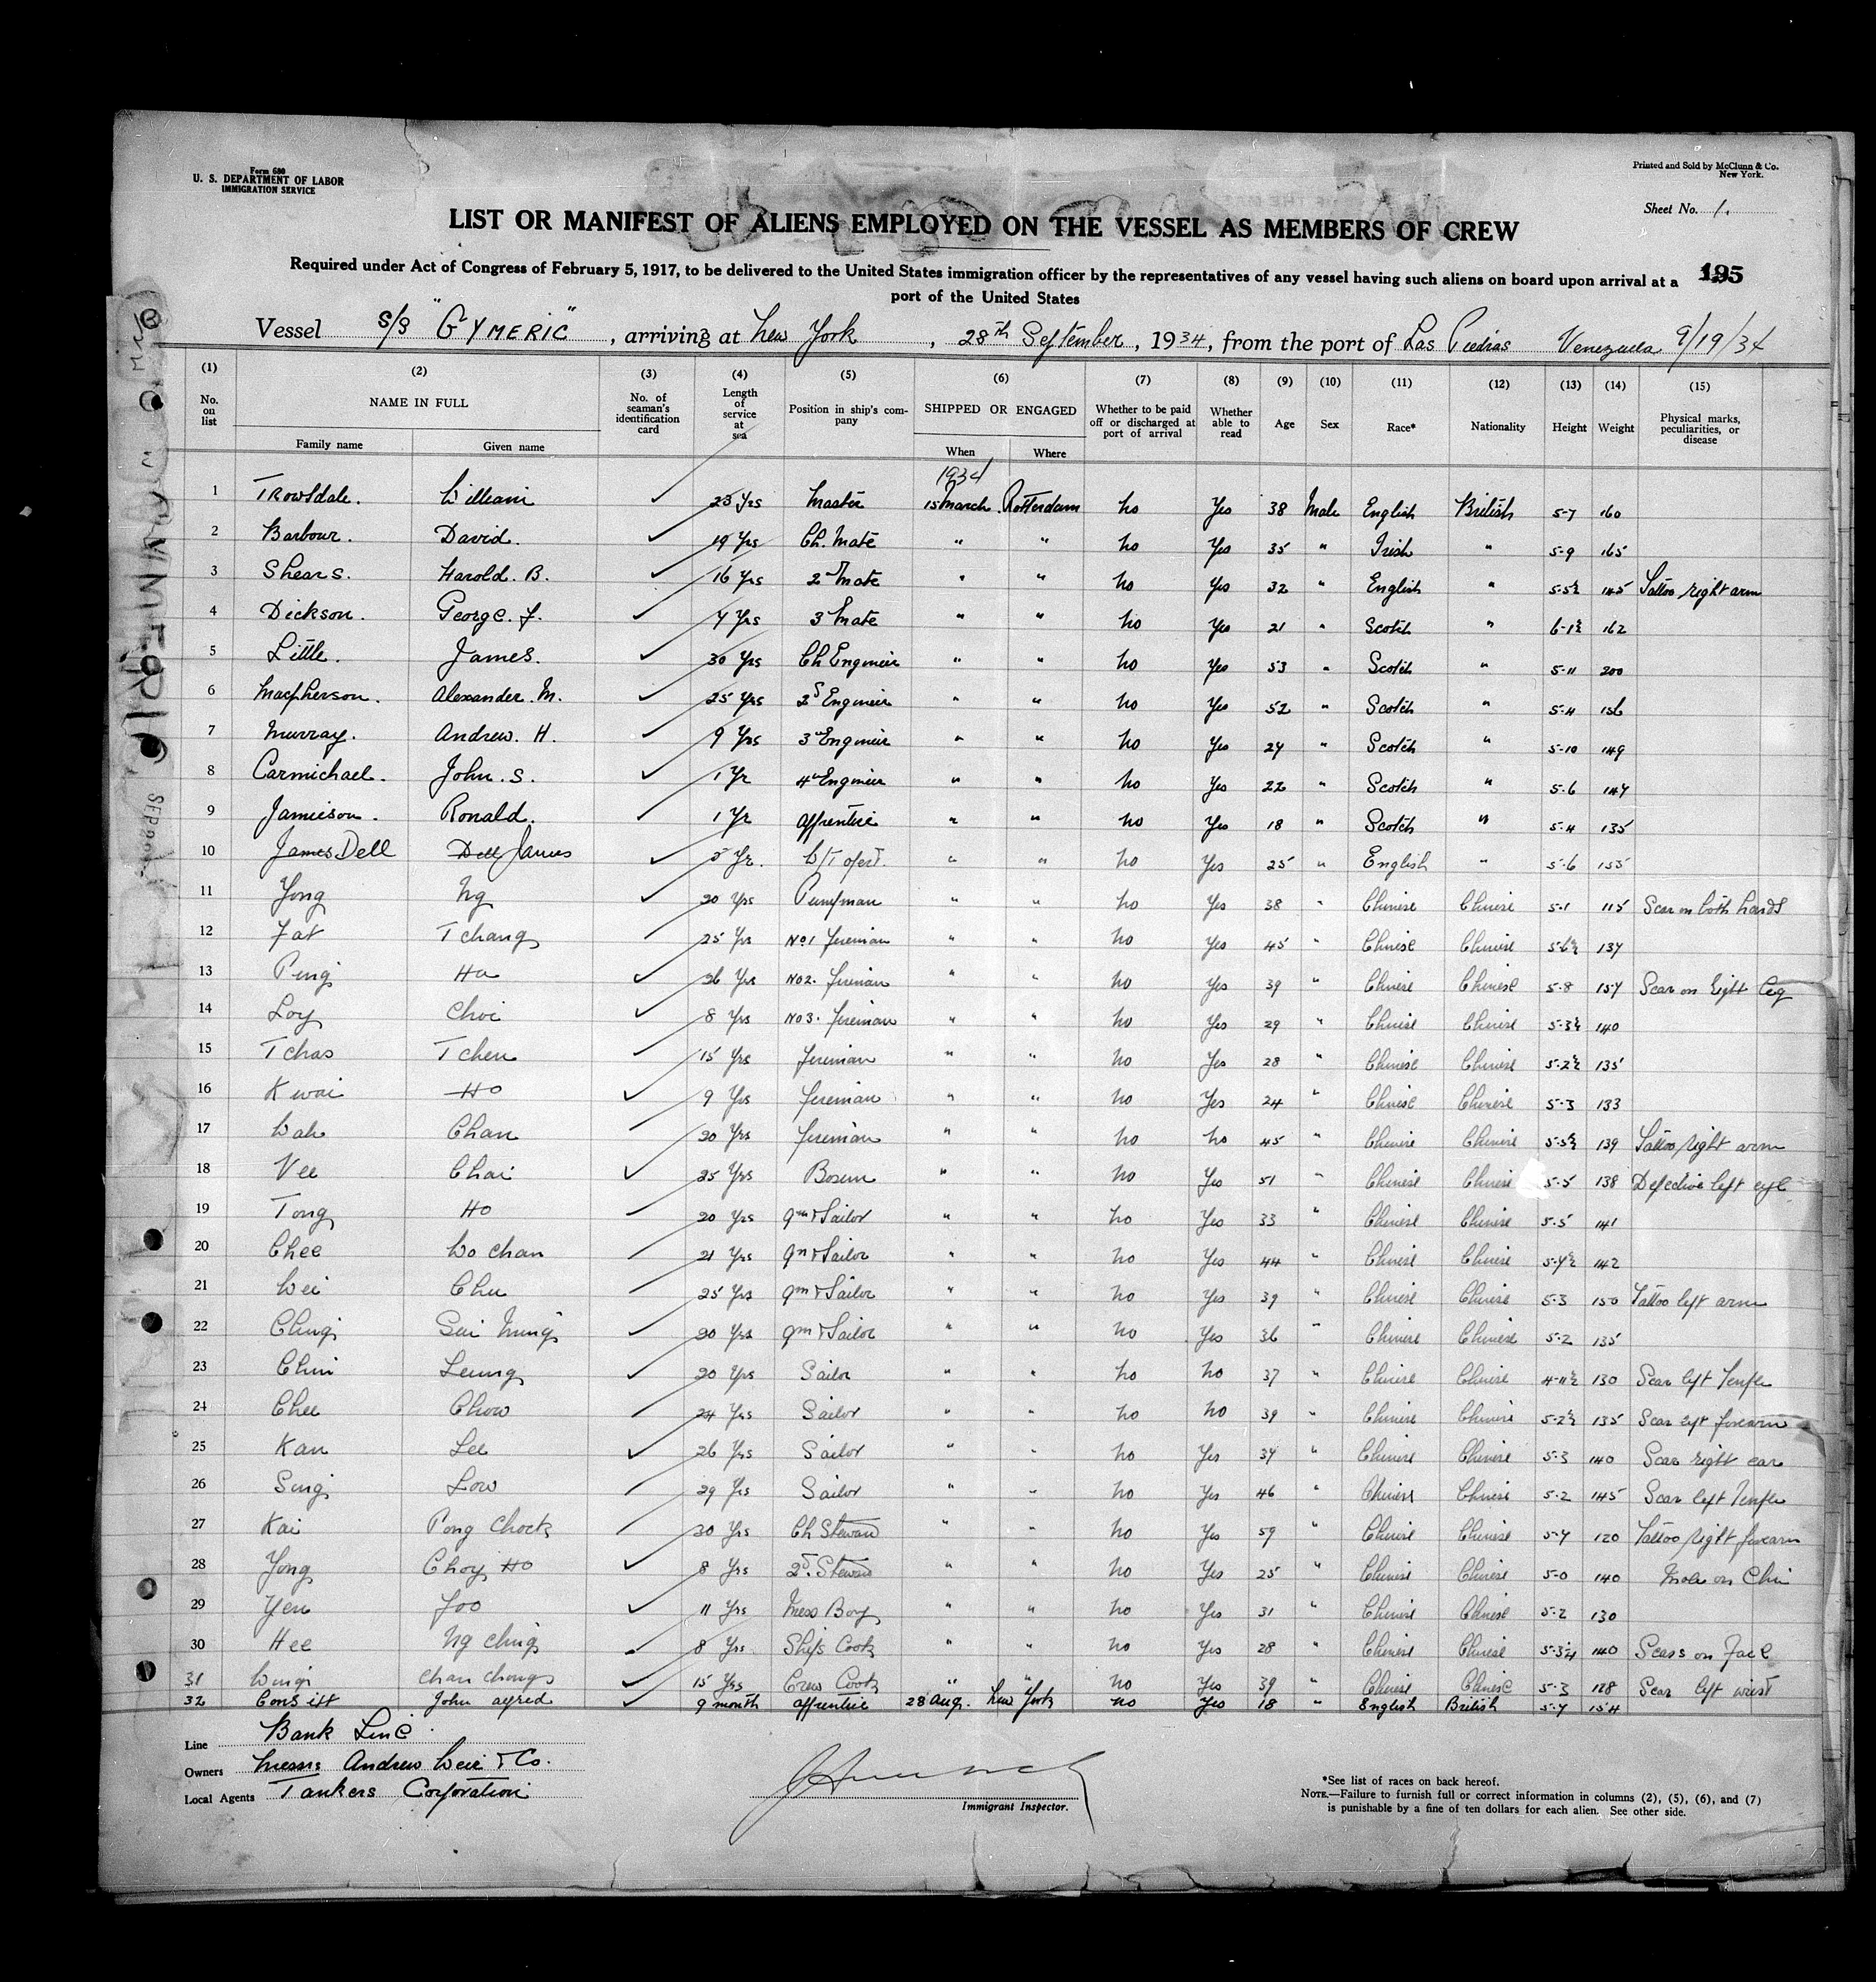 Form 680
U. S. DEPARTMENT OF LABOR
IMMIGRATION SERVICE
Printed and Sold by McClunn & Co.
New York.
Sheet No. 1.
LIST OR MANIFEST OF ALIENS EMPLOYED ON THE VESSEL AS MEMBERS OF CREW
Required under Act of Congress of February 5, 1917, to be delivered to the United States immigration officer by the representatives of any vessel having such aliens on board upon arrival at a
port of the United States
195
Vessel S/S "GYMERIC", arriving at New York, 28th September, 1934, from the port of Las Piedras Venezuela 9/19/34
(1) (2) (3) (4) (5) (6) (7) (8) (9) (10) (11) (12) (13) (14) (15)
No. on list NAME IN FULL No. of seaman's identification card Length of service at sea Position in ship's company SHIPPED OR ENGAGED Whether to be paid off or discharged at port of arrival Whether able to read Age Sex Race* Nationality Height Weight Physical marks, peculiarities, or disease
Family name Given name When Where
1934
1 Trowsdale. William 23 Yrs Master 15 March. Rotterdam No Yes 38 Male English British 5-7 160
2 Barbour. David. 19 Yrs Ch. Mate " " No Yes 35 " Irish " 5-9 165
3 Shears. Harold. B. 16 Yrs 2nd Mate " " No Yes 32 " English " 5-5½ 145 Tattoo right arm
4 Dickson. George. J. 4 Yrs 3 Mate " " No Yes 21 " Scotch " 6-1½ 162
5 Little. James. 30 Yrs Ch Engineer " " No Yes 53 " Scotch " 5-11 200
6 Macpherson. Alexander. M. 25 Yrs 2d Engineer " " No Yes 52 " Scotch " 5-4 156
7 Murray. Andrew. H. 9 Yrs 3 Engineer " " No Yes 24 " Scotch " 5-10 149
8 Carmichael. John. S. 1 Yr 4 Engineer " " No Yes 22 " Scotch " 5-6 147
9 Jamieson. Ronald. 1 Yr Apprentice " " No Yes 18 " Scotch " 5-4 135
10 James Dell Dell James 5 Yr. W/T Opert. " " No Yes 25 " English " 5-6 155
11 Yong Ng 20 Yrs Pumpman " " No Yes 38 " Chinese Chinese 5-1 115 Scar on both hands
12 Fat Tchang 25 Yrs No1 Fireman " " No Yes 45 " Chinese Chinese 5-6½ 137
13 Ping Ho 26 Yrs No2. Fireman " " No Yes 39 " Chinese Chinese 5-8 157 Scar on Right leg
14 Loy Choi 8 Yrs No3. Fireman " " No Yes 29 " Chinese Chinese 5-3½ 140
15 Tchas Tchen 15 Yrs Fireman " " No Yes 28 " Chinese Chinese 5-2½ 135
16 Kwai Ho 9 Yrs Fireman " " No Yes 24 " Chinese Chinese 5-3 133
17 Wah Chan 20 Yrs Fireman " " No No 45 " Chinese Chinese 5-5½ 139 Tattoo right arm
18 Vee Chai 25 Yrs Bosun " " No Yes 51 " Chinese Chinese 5-5 138 Defective left eye
19 Tong Ho 20 Yrs Qm & Sailor " " No Yes 33 " Chinese Chinese 5-5 141
20 Chee Wo Chan 21 Yrs Qm & Sailor " " No Yes 44 " Chinese Chinese 5-4½ 142
21 Wei Chu 25 Yrs Qm & Sailor " " No Yes 39 " Chinese Chinese 5-3 150 Tattoo left arm
22 Ching Sui Ming 20 Yrs Qm & Sailor " " No Yes 36 " Chinese Chinese 5-2 135
23 Chin Leung 20 Yrs Sailor " " No No 37 " Chinese Chinese 4-11½ 130 Scar left Temple
24 Chee Chow 24 Yrs Sailor " " No No 39 " Chinese Chinese 5-2½ 135 Scar left forearm
25 Kan Lee 26 Yrs Sailor " " No Yes 34 " Chinese Chinese 5-3 140 Scar right ear
26 Sing Low 29 Yrs Sailor " " No Yes 46 " Chinese Chinese 5-2 145 Scar left Temple
27 Kai Pong Chock 30 Yrs Ch Steward " " No Yes 59 " Chinese Chinese 5-4 120 Tattoo right forearm
28 Yong Choy Ho 8 Yrs 2d. Steward " " No Yes 25 " Chinese Chinese 5-0 140 Mole on Chin
29 Yen Foo 11 Yrs Mess Boy " " No Yes 31 " Chinese Chinese 5-2 130
30 Hee Ng Ching 8 Yrs Ships Cook " " No Yes 28 " Chinese Chinese 5-3¼ 140 Scars on Face
31 Wing Chan Chong 15 Yrs Crew Cook " " No Yes 39 " Chinese Chinese 5-3 128 Scar left wrist
32 Consitt John Alfred 9 month Apprentice 28 Aug. New York No Yes 18 " English British 5-7 154
Line Bank Line
Owners Messrs Andrew Weir & Co.
Local Agents Tankers Corporation
Immigrant Inspector.
*See list of races on back hereof.
NOTE.—Failure to furnish full or correct information in columns (2), (5), (6), and (7)
is punishable by a fine of ten dollars for each alien. See other side.